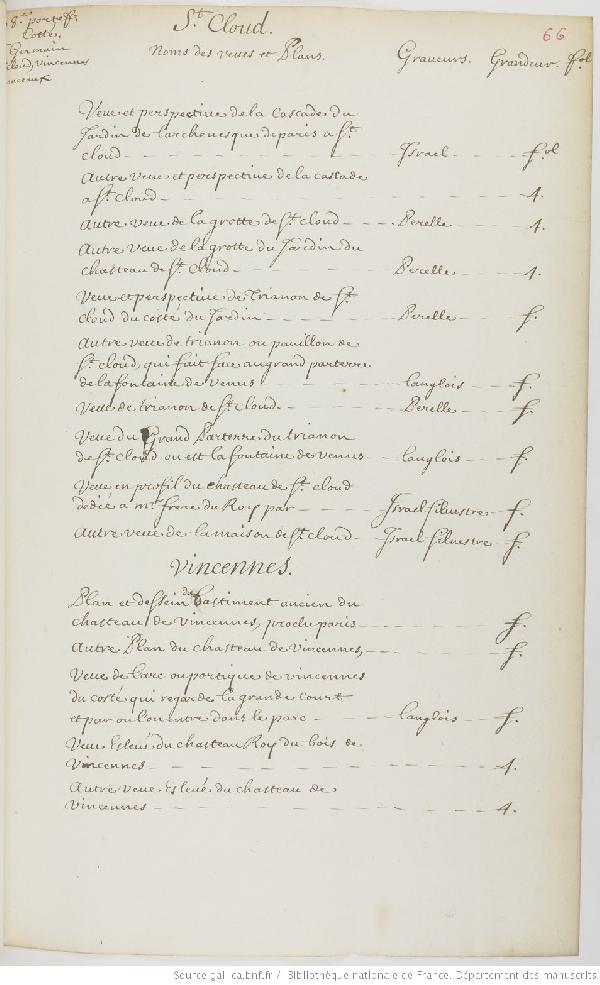 8.e portef.
Cottes.
Germain
cloud, vincennes
St. Cloud.
66
Noms des veues et Plans. Graveurs. Grandeur. fol
Veue et perspective de la Cascade du
Jardin de larchevesque de paris a St.
Cloud Israel fol
Autre veue et perspective de la cascade
a St. Cloud 4.
Autre veue de la grotte de St. cloud Perelle 4.
Autre veue de la grotte du Jardin du
chasteau de St. Cloud Perelle 4.
Veue et perspective de Trianon de St.
Cloud du costé du Jardin Perelle f.
Autre veue de trianon ou pavillon de
St. cloud, qui fait face au grand parterre
de la fontaine de venus Langlois f.
Veue de trianon de St. cloud Perelle f.
Veue du Grand Parterre du trianon
de St. Cloud ou est la fontaine de venus Langlois f.
Veue en profil du chasteau de St. cloud
dedié a mr. frere du Roy par Israel silvestre f.
Autre veue de la maison de St. cloud Israel silvestre f.
Vincennes.
Plan et dessein du bastiment ancien du
chasteau de vincennes, proche paris f.
Autre Plan du chasteau de vincennes, f.
Veue de larc ou portique de vincennes
du costé qui regarde la grande court
et par ou l'on entre dans le parc Langlois f.
Veue Eslevé du chasteau Roy. du bois de
Vincennes 4.
Autre veue Eslevé du chasteau de
vincennes 4.
Source gallica.bnf.fr / Bibliothèque nationale de France. Département des manuscrits